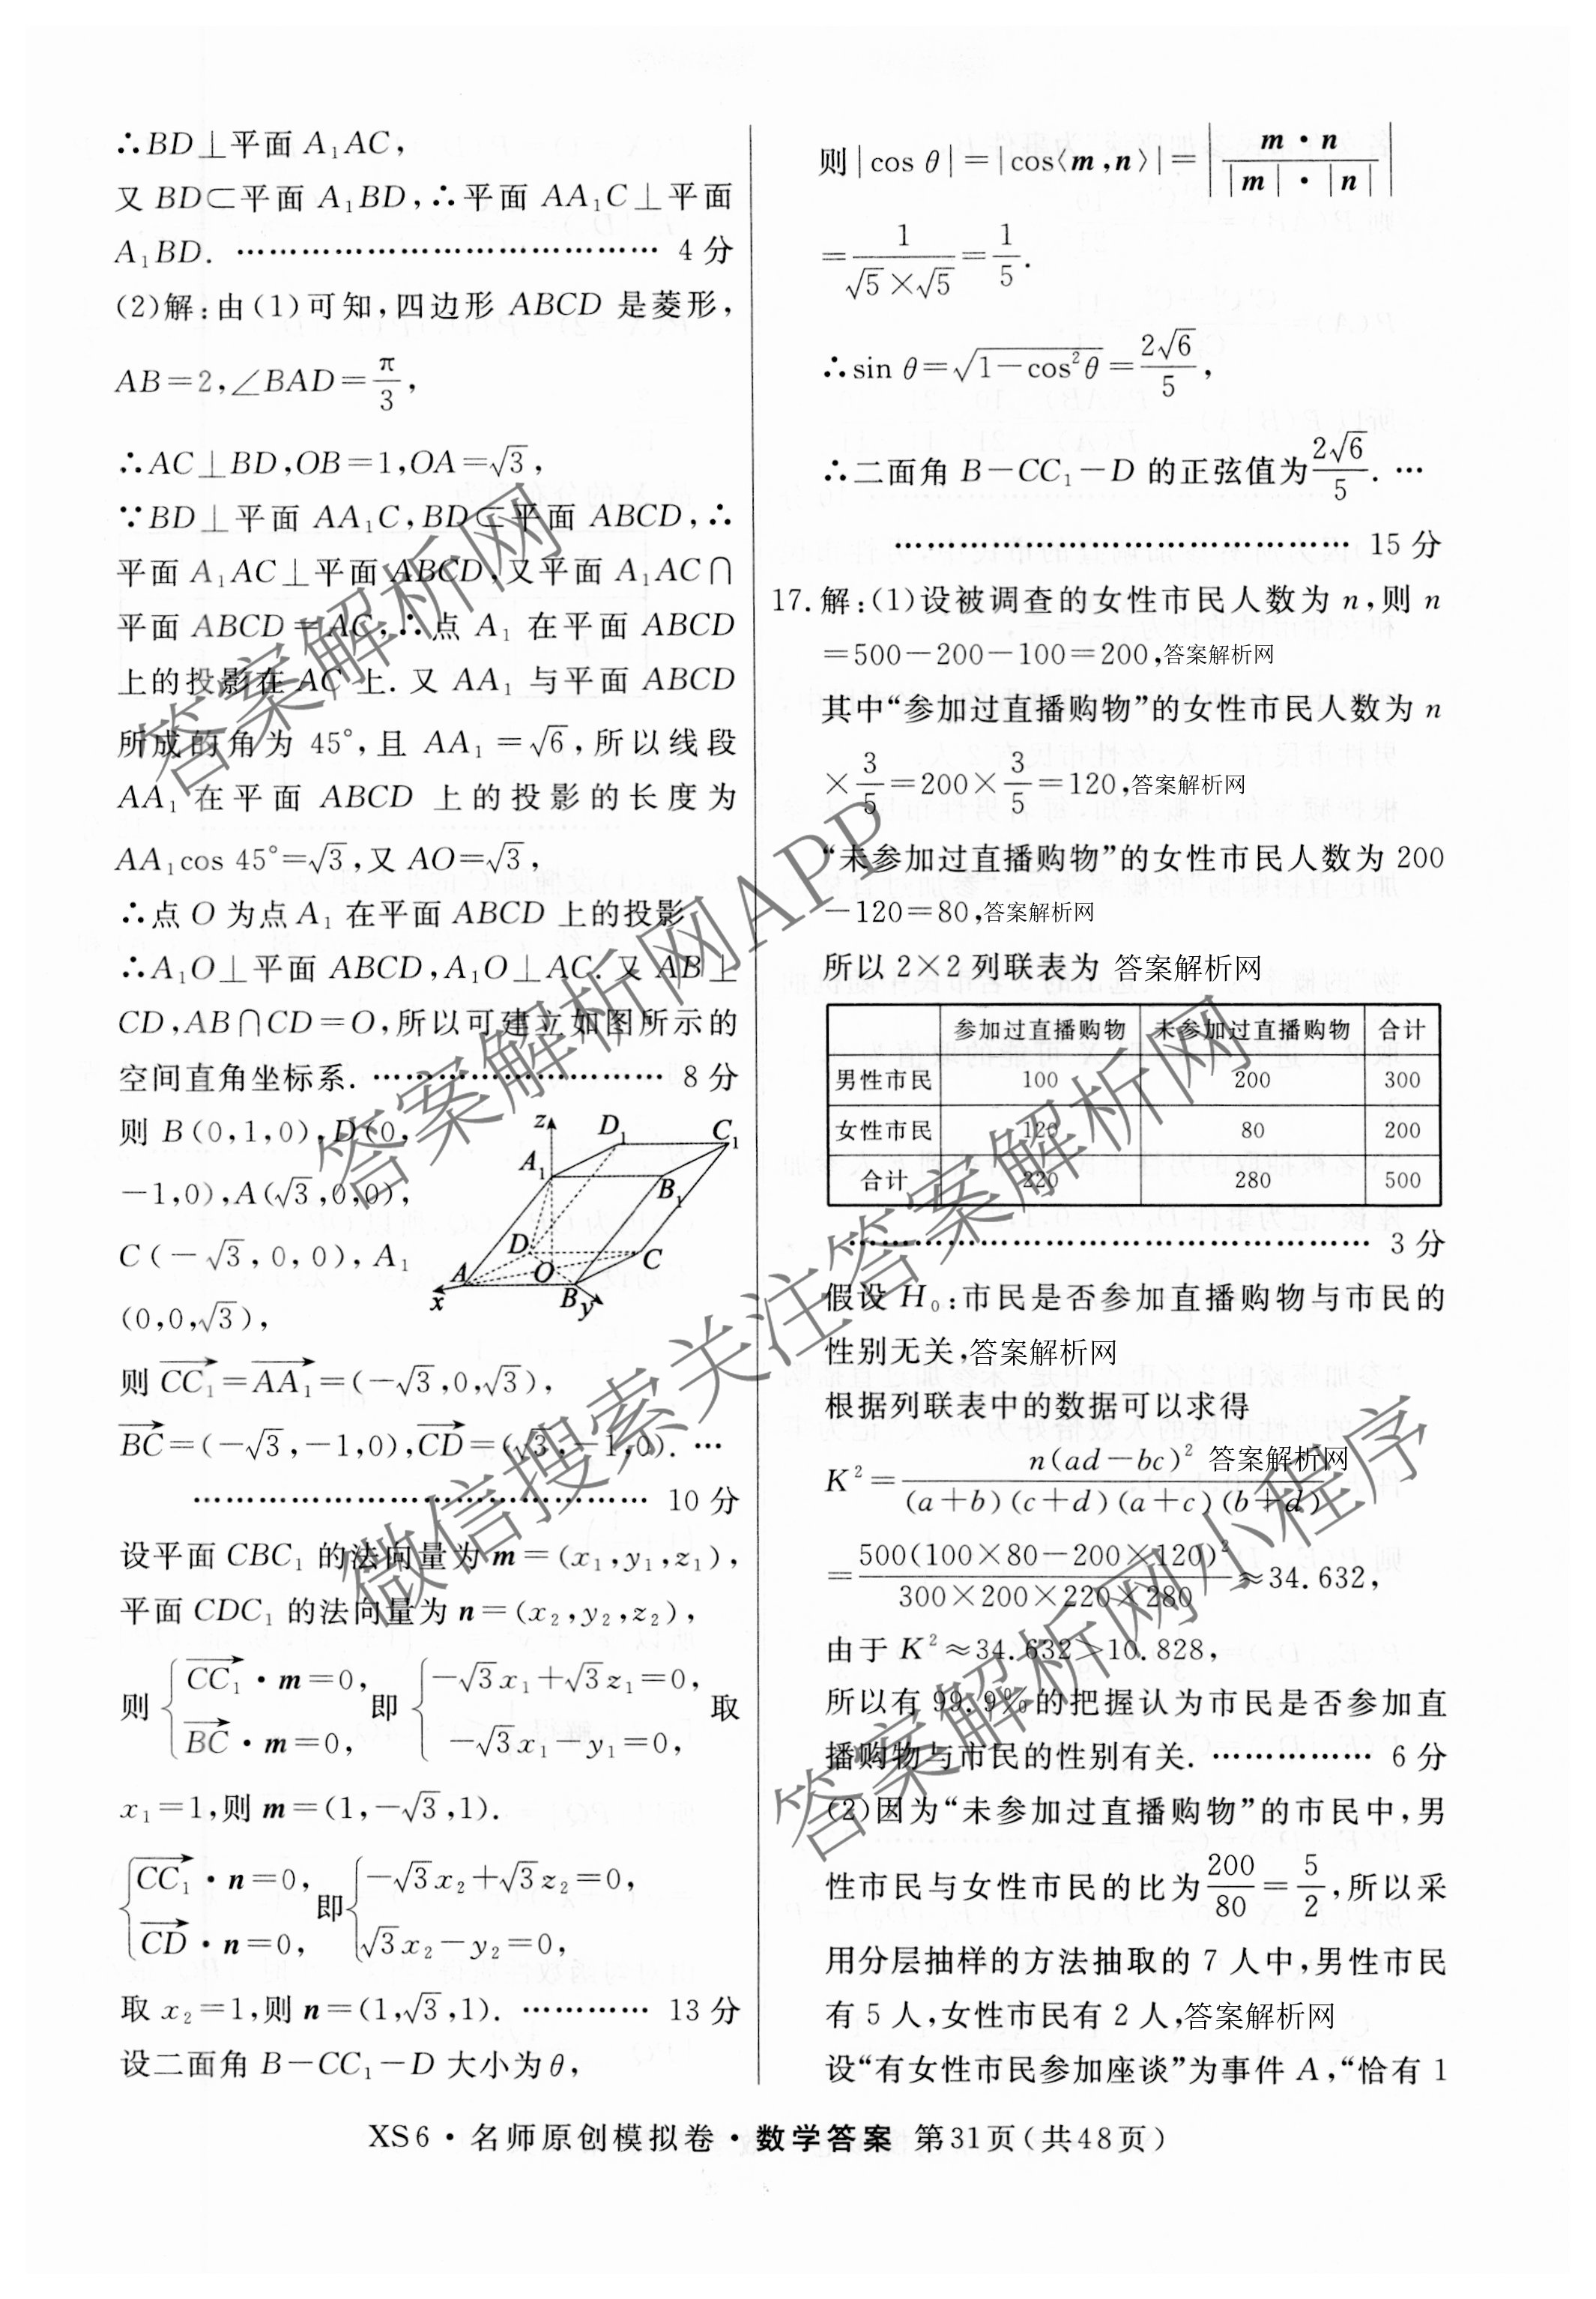 ∴BD⊥平面 A₁AC,
又 BD⊂平面 A₁BD,∴平面 AA₁C⊥平面
A₁BD. …………………………………… 4 分
(2)解:由(1)可知,四边形 ABCD 是菱形,
AB=2,∠BAD=π/3,
∴AC⊥BD,OB=1,OA=√3,
∵BD⊥平面 AA₁C,BD⊂平面 ABCD,∴
平面 A₁AC⊥平面 ABCD,又平面 A₁AC∩
平面 ABCD=AC,∴点 A₁ 在平面 ABCD
上的投影在 AC 上. 又 AA₁ 与平面 ABCD
所成的角为 45°,且 AA₁=√6,所以线段
AA₁ 在平面 ABCD 上的投影的长度为
AA₁cos 45°=√3,又 AO=√3,
∴点 O 为点 A₁ 在平面 ABCD 上的投影,
∴A₁O⊥平面 ABCD,A₁O⊥AC. 又 AB⊥
CD,AB∩CD=O,所以可建立如图所示的
空间直角坐标系. ………………………… 8 分
则 B(0,1,0),D(0,
−1,0),A(√3,0,0),
C(−√3,0,0),A₁
(0,0,√3),
z D₁ C₁
A₁ B₁
D C
A O
x B y
则 CC₁=AA₁=(−√3,0,√3),
BC=(−√3,−1,0),CD=(√3,−1,0). …
……………………………………… 10 分
设平面 CBC₁ 的法向量为 m=(x₁,y₁,z₁),
平面 CDC₁ 的法向量为 n=(x₂,y₂,z₂),
则{CC₁·m=0, BC·m=0, 即{−√3x₁+√3z₁=0, −√3x₁−y₁=0, 取
x₁=1,则 m=(1,−√3,1).
{CC₁·n=0, CD·n=0, 即{−√3x₂+√3z₂=0, √3x₂−y₂=0,
取 x₂=1,则 n=(1,√3,1). ………… 13 分
设二面角 B−CC₁−D 大小为θ,
则|cos θ|=|cos⟨m,n⟩|=|m·n/(|m|·|n|)|
=1/(√5×√5)=1/5.
∴sin θ=√(1−cos²θ)=2√6/5,
∴二面角 B−CC₁−D 的正弦值为2√6/5. …
……………………………………… 15 分
17.解:(1)设被调查的女性市民人数为 n,则 n
=500−200−100=200,答案解析网
其中“参加过直播购物”的女性市民人数为 n
×3/5=200×3/5=120,答案解析网
“未参加过直播购物”的女性市民人数为 200
−120=80,答案解析网
所以 2×2 列联表为 答案解析网
参加过直播购物 未参加过直播购物 合计
男性市民 100 200 300
女性市民 120 80 200
合计 220 280 500
…………………………………………… 3 分
假设 H₀:市民是否参加直播购物与市民的
性别无关,答案解析网
根据列联表中的数据可以求得
K²=n(ad−bc)²/((a+b)(c+d)(a+c)(b+d)) 答案解析网
=500(100×80−200×120)²/(300×200×220×280)≈34.632,
由于 K²≈34.632>10.828,
所以有 99.9%的把握认为市民是否参加直
播购物与市民的性别有关. …………… 6 分
(2)因为“未参加过直播购物”的市民中,男
性市民与女性市民的比为200/80=5/2,所以采
用分层抽样的方法抽取的 7 人中,男性市民
有 5 人,女性市民有 2 人,答案解析网
设“有女性市民参加座谈”为事件 A,“恰有 1
XS6·名师原创模拟卷·数学答案 第31页(共48页)
答案解析网
答案解析网APP
微信搜索关注答案解析网
答案解析网小程序